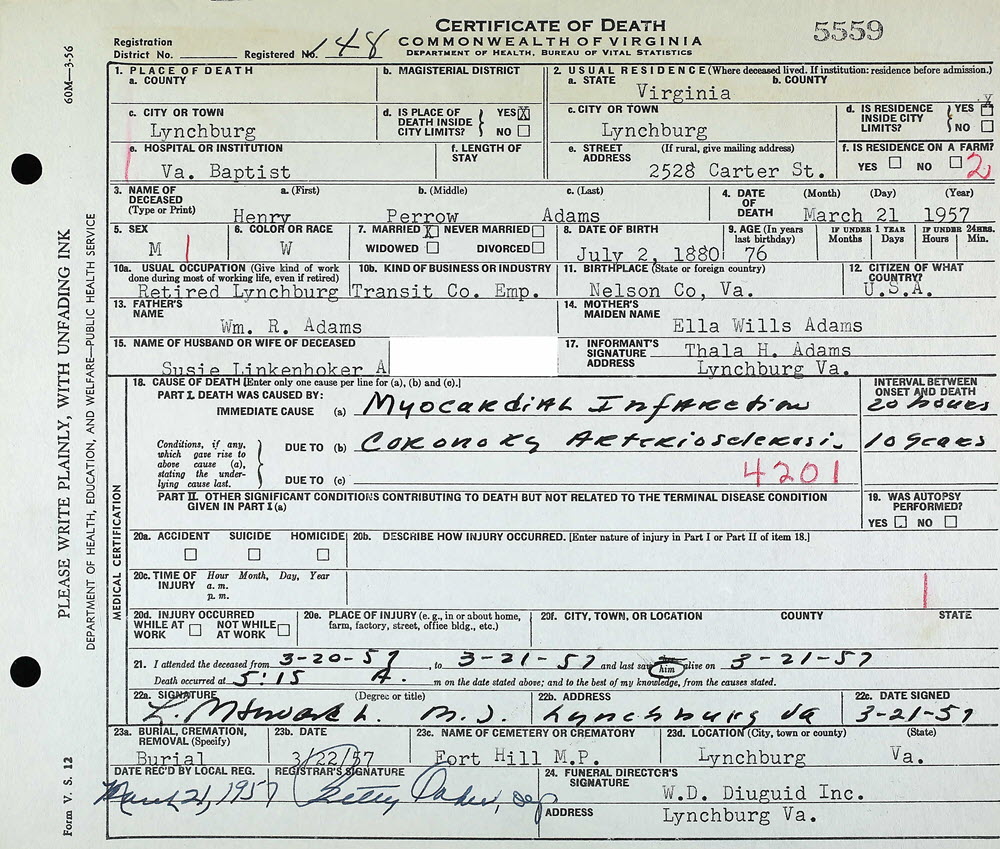 CERTIFICATE OF DEATH
5559
COMMONWEALTH OF VIRGINIA
DEPARTMENT OF HEALTH, BUREAU OF VITAL STATISTICS
Registration
District No. Registered No. 148
60M—3-56
1. PLACE OF DEATH
a. COUNTY
b. MAGISTERIAL DISTRICT
2. USUAL RESIDENCE (Where deceased lived. If institution: residence before admission.)
a. STATE b. COUNTY
Virginia
c. CITY OR TOWN
Lynchburg
d. IS PLACE OF DEATH INSIDE CITY LIMITS? YES X NO
c. CITY OR TOWN
Lynchburg
d. IS RESIDENCE INSIDE CITY LIMITS? YES X NO
e. HOSPITAL OR INSTITUTION
Va. Baptist
f. LENGTH OF STAY
e. STREET ADDRESS (If rural, give mailing address)
2528 Carter St.
f. IS RESIDENCE ON A FARM?
YES NO 2
3. NAME OF DECEASED (Type or Print)
a. (First) b. (Middle) c. (Last)
Henry Perrow Adams
4. DATE OF DEATH (Month) (Day) (Year)
March 21 1957
5. SEX
M
6. COLOR OR RACE
W
7. MARRIED X NEVER MARRIED
WIDOWED DIVORCED
8. DATE OF BIRTH
July 2, 1880
9. AGE (In years last birthday)
76
IF UNDER 1 YEAR
Months Days
IF UNDER 24HRS.
Hours Min.
10a. USUAL OCCUPATION (Give kind of work done during most of working life, even if retired)
Retired Lynchburg
10b. KIND OF BUSINESS OR INDUSTRY
Transit Co. Emp.
11. BIRTHPLACE (State or foreign country)
Nelson Co, Va.
12. CITIZEN OF WHAT COUNTRY?
U.S.A.
13. FATHER'S NAME
Wm. R. Adams
14. MOTHER'S MAIDEN NAME
Ella Wills Adams
15. NAME OF HUSBAND OR WIFE OF DECEASED
Susie Linkenhoker A
17. INFORMANT'S SIGNATURE Thala H. Adams
ADDRESS Lynchburg Va.
18. CAUSE OF DEATH [Enter only one cause per line for (a), (b) and (c).]
INTERVAL BETWEEN ONSET AND DEATH
PART I. DEATH WAS CAUSED BY:
IMMEDIATE CAUSE (a) Myocardial Infarction 20 hours
Conditions, if any, which gave rise to above cause (a), stating the underlying cause last.
DUE TO (b) Coronory Arteriosclerosis 10 years
4201
DUE TO (c)
PART II. OTHER SIGNIFICANT CONDITIONS CONTRIBUTING TO DEATH BUT NOT RELATED TO THE TERMINAL DISEASE CONDITION
GIVEN IN PART I (a)
19. WAS AUTOPSY PERFORMED?
YES NO
20a. ACCIDENT SUICIDE HOMICIDE
20b. DESCRIBE HOW INJURY OCCURRED. [Enter nature of injury in Part I or Part II of item 18.]
20c. TIME OF INJURY Hour Month, Day, Year
a. m.
p. m.
20d. INJURY OCCURRED
WHILE AT WORK NOT WHILE AT WORK
20e. PLACE OF INJURY (e. g., in or about home, farm, factory, street, office bldg., etc.)
20f. CITY, TOWN, OR LOCATION COUNTY STATE
21. I attended the deceased from 3-20-57, to 3-21-57 and last saw him alive on 3-21-57
Death occurred at 5:15 A. m on the date stated above; and to the best of my knowledge, from the causes stated.
22a. SIGNATURE (Degree or title)
M.D.
22b. ADDRESS
Lynchburg Va
22c. DATE SIGNED
3-21-57
23a. BURIAL, CREMATION, REMOVAL (Specify)
Burial
23b. DATE
3/22/57
23c. NAME OF CEMETERY OR CREMATORY
Fort Hill M.P.
23d. LOCATION (City, town or county) (State)
Lynchburg Va.
DATE REC'D BY LOCAL REG.
March 21, 1957
REGISTRAR'S SIGNATURE
Betty
24. FUNERAL DIRECTOR'S SIGNATURE
W.D. Diuguid Inc.
ADDRESS Lynchburg Va.
PLEASE WRITE PLAINLY, WITH UNFADING INK
DEPARTMENT OF HEALTH, EDUCATION, AND WELFARE—PUBLIC HEALTH SERVICE
MEDICAL CERTIFICATION
Form V. S. 12